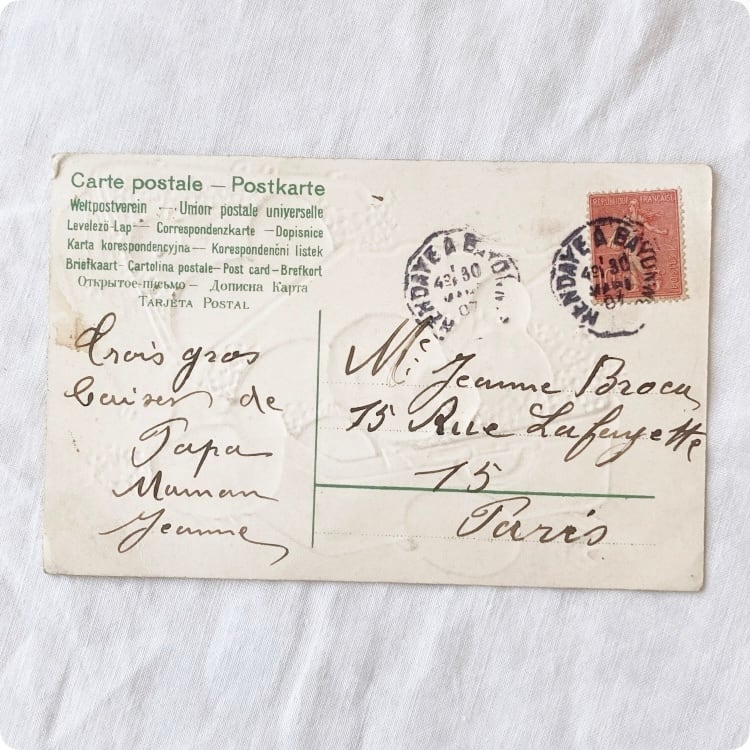 Carte postale — Postkarte
Weltpostverein — Union postale universelle
Levelező-Lap — Correspondenzkarte — Dopisnice
Karta korespondencyjna — Korespondenční listek
Briefkaart - Cartolina postale - Post card - Brefkort
Открытое-письмо — Дописна Карта
Tarjeta Postal
RÉPUBLIQUE FRANÇAISE
HENDAYE A BAYONN
1
49 30
07
HENDAYE A BAYONN
1
49 30
07
Trois gros
baisers de
Papa
Maman
Jeanne
Me Jeanne Broca
75 Rue Lafayette
75
Paris